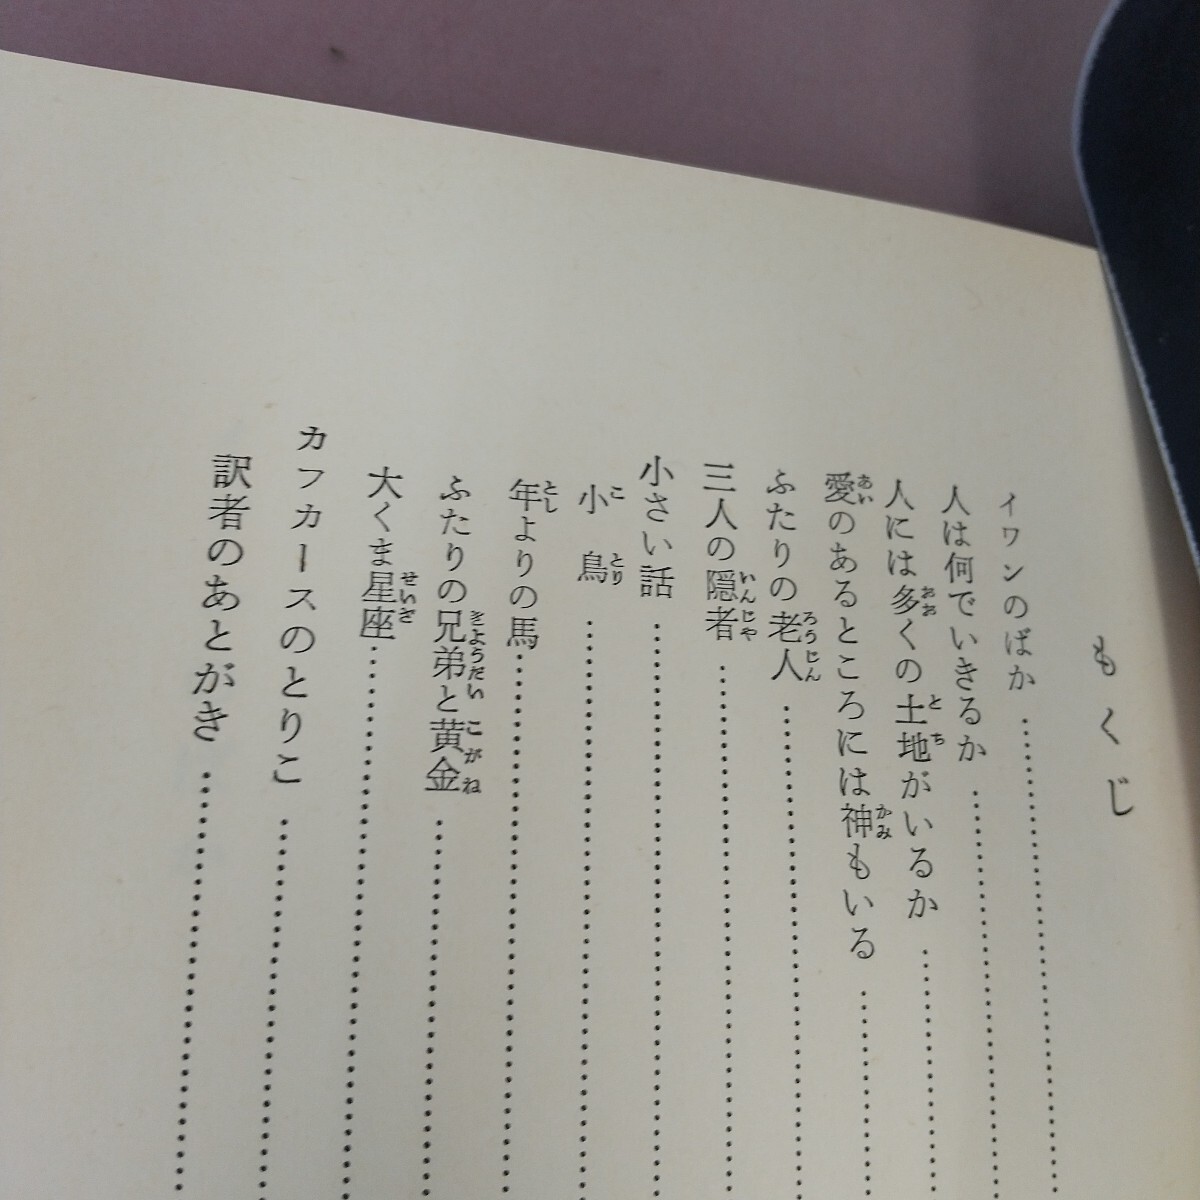 もくじ
イワンのばか
人は何でいきるか
人には多くの土地がいるか
愛のあるところには神もいる
ふたりの老人
三人の隠者
小さい話
小鳥
年よりの馬
ふたりの兄弟と黄金
大くま星座
カフカースのとりこ
訳者のあとがき